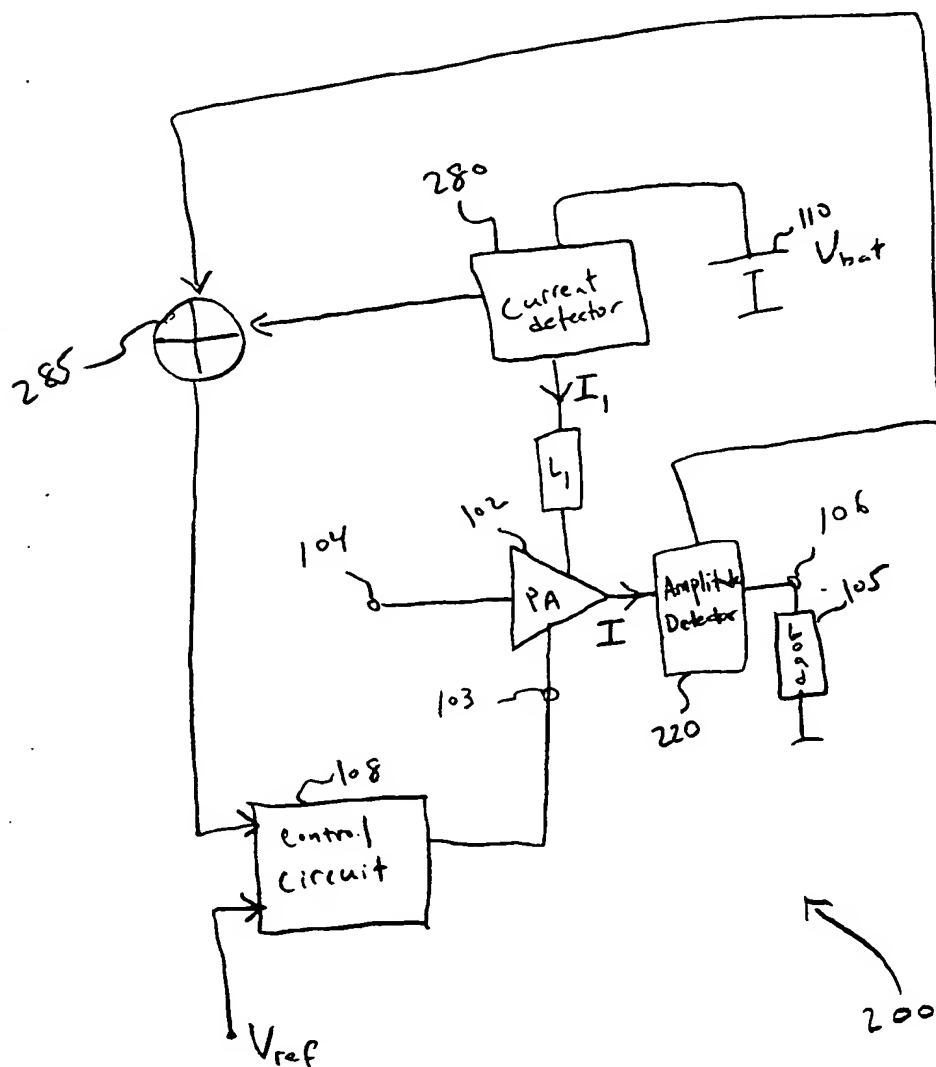 280
110
Vbat
Current
detector
285
I1
L1
102
104
PA
I
Amplitude
Detector
106
105
Load
103
220
108
Control
Circuit
Vref
200